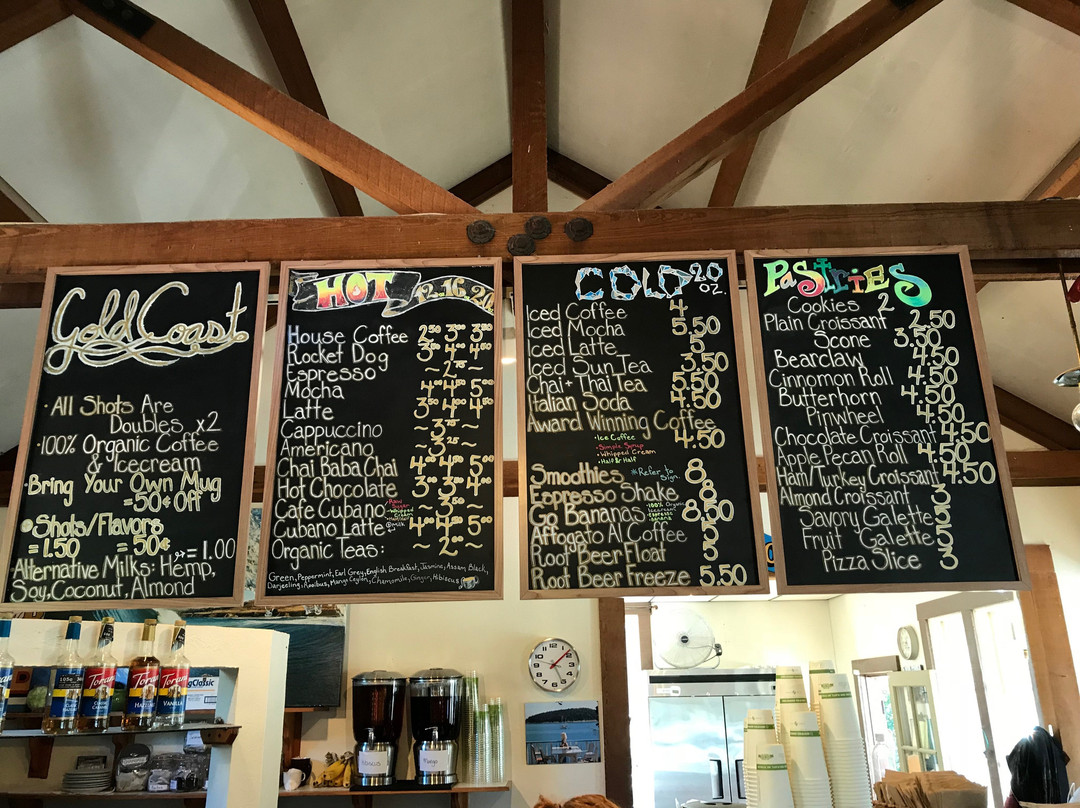 Gold Coast
· All Shots Are
Doubles x2
· 100% Organic Coffee
& Icecream
· Bring Your Own Mug
= 50¢ Off
• Shots/Flavors
= 1.50 = 50¢
Alternative Milks: Hemp, = 1.00
Soy, Coconut, Almond
HOT 12.16.20
House Coffee 2⁵⁰ 3⁰⁰ 3⁵⁰
Rocket Dog 3⁵⁰ 4⁰⁰ 4⁵⁰
Espresso ~ 2⁷⁵ ~
Mocha 4⁰⁰ 4⁵⁰ 5⁰⁰
Latte 3⁵⁰ 4⁰⁰ 4⁵⁰
Cappuccino ~ 3⁷⁵ ~
Americano ~ 3²⁵ ~
Chai Baba Chai 4⁰⁰ 4⁵⁰ 5⁰⁰
Hot Chocolate 3⁰⁰ 3⁵⁰ 4⁰⁰
Cafe Cubano ~ 3⁵⁰ ~
Cubano Latte 4⁰⁰ 4⁵⁰ 5⁰⁰
Organic Teas: ~ 2⁰⁰ ~
Green, Peppermint, Earl Grey, English Breakfast, Jasmine, Assam, Black,
Darjeeling, Rooibus, Mango Ceylon, Chamomile, Ginger, Hibiscus
COLD 20 oz.
Iced Coffee 4
Iced Mocha 5.50
Iced Latte 5
Iced Sun Tea 3.50
Chai + Thai Tea 5.50
Italian Soda 4.50
Award Winning Coffee 4.50
• Ice Coffee
• Simple Syrup
• Whipped Cream
• Half & Half
Smoothies *Refer to Sign. 8
Espresso Shake 8
Go Bananas 8.50
Affogato Al Coffee 5
Root Beer Float 5
Root Beer Freeze 5.50
PaStriES
Cookies 2
Plain Croissant 2.50
Scone 3.50
Bearclaw 4.50
Cinnomon Roll 4.50
Butterhorn 4.50
Pinwheel 4.50
Chocolate Croissant 4.50
Apple Pecan Roll 4.50
Ham/Turkey Croissant 4.50
Almond Croissant 3
Savory Galette 5
Fruit Galette 5
Pizza Slice 3
Torani
Torani
Torani
HAZELNUT
VANILLA
Classic
Mango